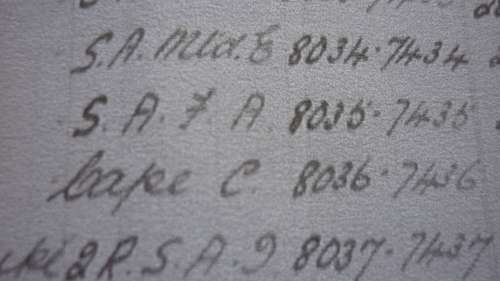 S.A. Mld. E 8034.7434
S.A. F A. 8035.7435
Cape C. 8036.7436
2 R.S.A. 9 8037.7437